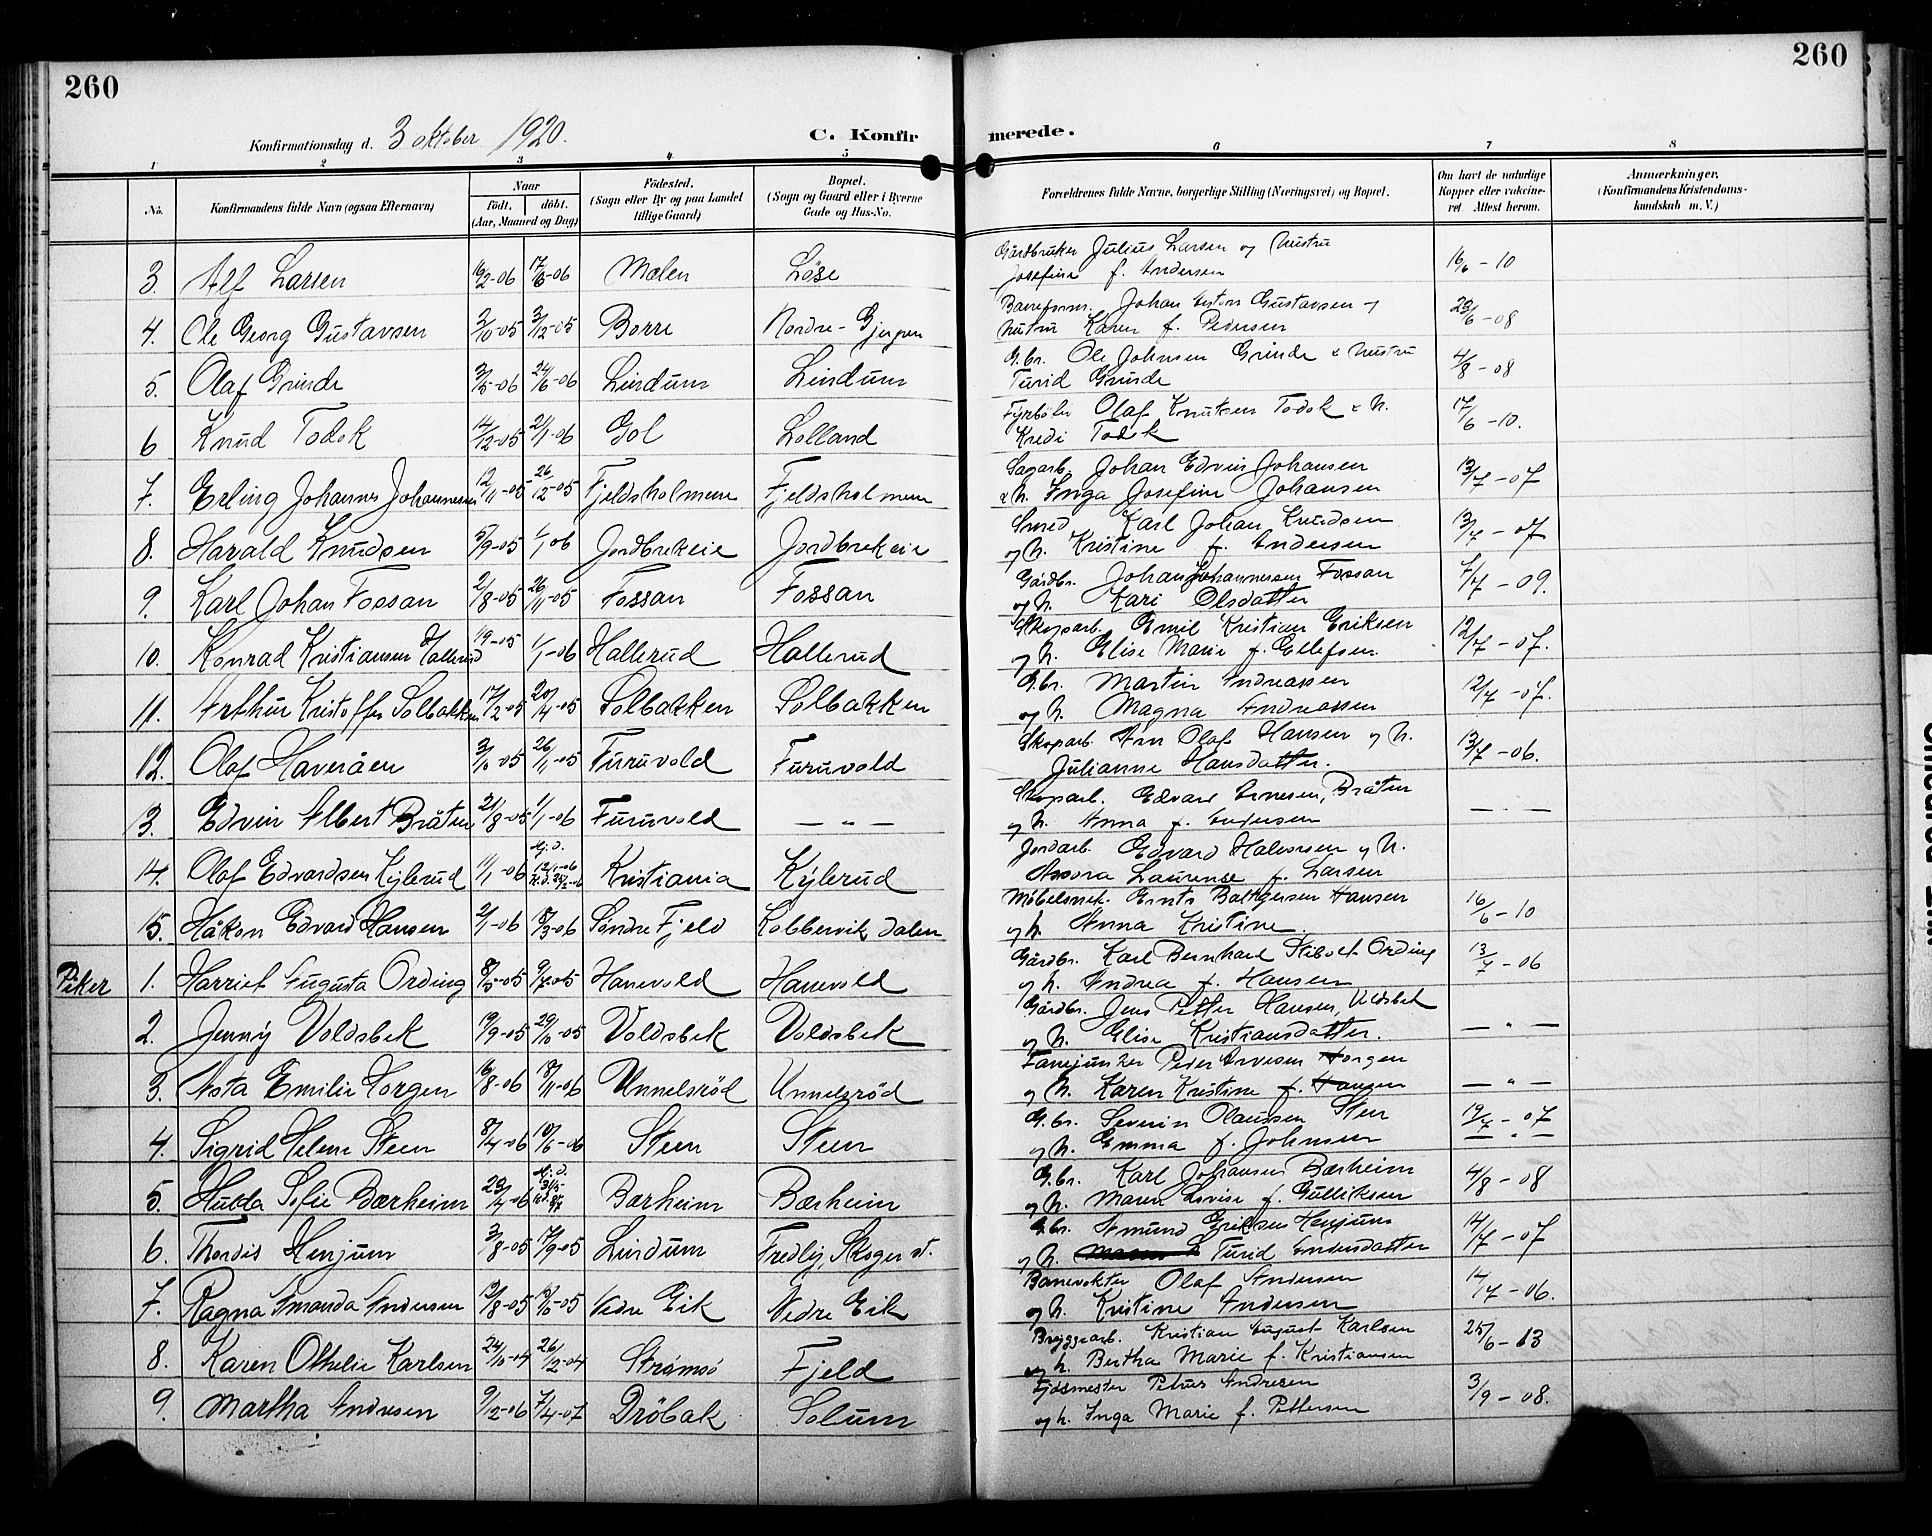 260
260
Konfirmationsdag d. 3 oktober 1920.
C. Konfirmerede.
1 2 3 4 5 6 7 8
No. Konfirmandens fulde Navn (ogsaa Efternavn) Naar födt. döbt. (Aar, Maaned og Dag) Födested. (Sogn eller By og paa Landet tillige Gaard) Bopæl. (Sogn og Gaard eller i Byerne Gade og Hus-No. Forældrenes fulde Navne, borgerlige Stilling (Næringsvei) og Bopæl. Om havt de naturlige Kopper eller vakcineret Attest herom. Anmærkninger. (Konfirmandens Kristendomskundskab m. V.)
3. Alf Larsen 16/2-06 17/6-06 Mælen Löse Gårdbruker Julius Larsen og hustru
Josefine f. Andersen 16/6-10
4. Ole Georg Gustavsen 2/10-05 3/12-05 Borre Nordre- Johan Anton Gustavsen
hustru Karen f. Pedersen 23/6-08
5. Olaf Grinde 3/5-06 24/6-06 Lindum Lindum G.br. Ole Johnsen Grinde & hustru
Turid Grinde 4/8-08
6 Knud Todok 14/12-05 21/1-06 Gol Lolland Fyrböter Olaf Knutsen Todok & h.
Kredi Todok 17/6-10.
7. Erling Johannes Johannesen 12/11-05 26/12-05 Fjeldsholmene Fjeldsholmene Sagarb. Johan Edvin Johansen
& h. Inga Josefine Johansen 13/7-07
8. Harald Knudsen 5/9-05 1/1 06 Jordbrekeie Jordbrekeie Smed Karl Johan Knudsen
og h. Kristine f. Andersen 13/7-07
9. Karl Johan Fossan 21/8-05 26/11-05 Fossan Fossan Gårdbr. Johan Johannessen Fossan
og h. Kari Olsdatter 7/7-09.
10. Konrad Kristiansen Hallerud 1/9-05 1/1-06 Hallerud Hallerud Skogarb. Emil Kristian Eriksen
og h. Elise Marie f. Ellefsen. 12/7-07.
11. Arthur Kristoffer Solbakken 17/2-05 20/4-05 Solbakken Solbakken G.br. Martin Andreassen
og h. Magna Andreassen 12/7-07.
12. Olaf Haveråen 3/10-05 26/11-05 Furuvold Furuvold Skogarb. Olaf Hansen og h.
Julianne Hansdatter. 13/7-06.
13. Edvin Albert Bråten 21/8-05 1/1-06 Furuvold — „ — Skogarb. Edvard Arnesen, Bråten
og h. Anna f. Andersen — „ —
14. Olaf Edvardsen Kylerud 11/1-06 Kristiania Kylerud Jordarb. Edvard Halvorsen og h.
Laurense f. Larsen
15. Håkon Edvard Hansen 2/1-06 18/3-06 Söndre Fjeld Kobbervikdalen Möbelsnek. Hansen
og h. Anna Kristine 16/6-10
Piker 1. Harriet Augusta Ording 8/5-05 9/7-05 Hanevold Hanevold Gårdbr. Karl Bernhard Stibolt Ording
og h. Andrea f. Hansen 13/7-06
2. Jenny Voldsbek 19/9-05 29/10-05 Voldsbek Voldsbek Gårdbr. Jens Petter Hansen, Voldsbek
og h. Elise Kristiansdatter. — „ —
3. Asta Emilie Horgen 16/8-06 18/11-06 Unnelsröd Unnelsröd Fanejunker Peder Horgen
og h. Karen Kristine f. Hansen — „ —
4. Sigrid Helene Steen 8/4-06 10/6-06 Steen Steen G.br. Severin Olaussen Sten
og h. Emma f. Johnsen 12/7-07
— „ —
5. Hulda Sofie Bærheim 29/4-06 Bærheim Bærheim G.br. Karl Johansen Bærheim
og h. Maren Lovise f. Gulliksen 4/8-08
6. Thordis Henjum 3/8-05 17/9-05 Lindum Fredly, Skoger st. G.br. Amund Eriksen Henjum
og h. Turid Andersdatter 14/7-07
7. Ragna Amanda Andersen 13/8-05 Nedre Eik Nedre Eik Banevokter Olaf Andersen
og h. Kristine Andersen 14/7-06.
8. Karen Othelie Karlsen 24/10-04 26/12-04 Strömsö Fjeld Bryggearb. Kristian August Karlsen
og h. Bertha Marie f. Kristiansen 25/6-13
9. Martha Andresen 9/12-06 7/4-07 Dröbak Solum Fjösmester Petrus Andresen
og h. Inga Marie f. Pettersen 3/9-08.